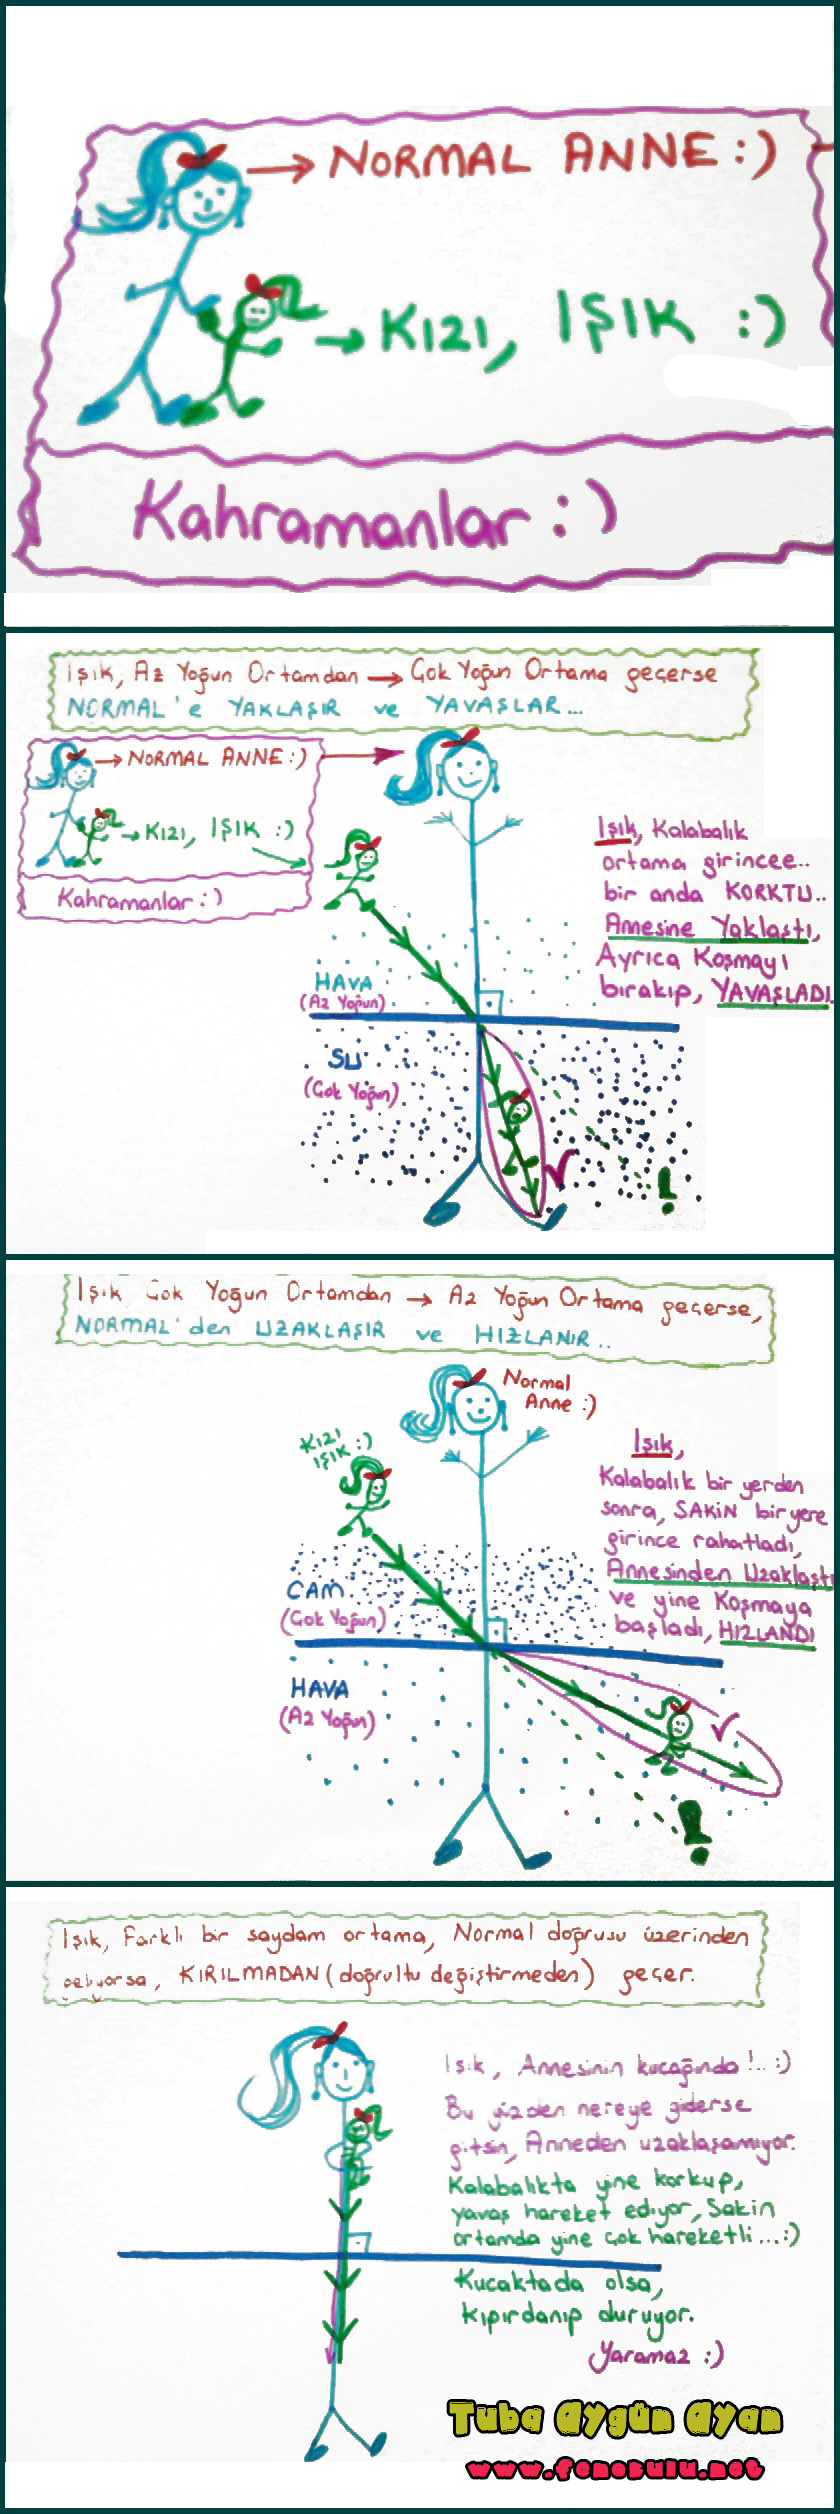 NORMAL ANNE :)
KIZI, IŞIK :)
Kahramanlar :)
Işık, Az Yoğun Ortamdan → Çok Yoğun Ortama geçerse
NORMAL'e YAKLAŞIR ve YAVAŞLAR...
NORMAL ANNE :)
KIZI, IŞIK :)
Kahramanlar :)
Işık, Kalabalık
ortama girincee..
bir anda KORKTU..
Annesine Yaklaştı,
Ayrıca Koşmayı
bırakıp, YAVAŞLADI.
HAVA
(Az Yoğun)
SU
(Çok Yoğun)
!
Işık Çok Yoğun Ortamdan → Az Yoğun Ortama geçerse,
NORMAL'den UZAKLAŞIR ve HIZLANIR..
Normal
Anne :)
KIZI
IŞIK :)
Işık,
Kalabalık bir yerden
sonra, SAKİN bir yere
girince rahatladı,
Annesinden Uzaklaştı
ve yine Koşmaya
başladı, HIZLANDI
CAM
(Çok Yoğun)
HAVA
(Az Yoğun)
!
Işık, Farklı bir saydam ortama, Normal doğrusu üzerinden
geliyorsa, KIRILMADAN (doğrultu değiştirmeden) geçer.
Işık, Annesinin kucağında!.. :)
Bu yüzden nereye giderse
gitsin, Anneden uzaklaşamıyor.
Kalabalıkta yine korkup,
yavaş hareket ediyor, Sakin
ortamda yine çok hareketli...:)
Kucaktada olsa,
kıpırdanıp duruyor.
Yaramaz :)
Tuba Aygün Ayan
www.fenokulu.net